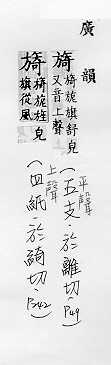 廣韻
旖 旖旎旗舒皃
又音上聲
(五支·於離切·P49)
平聲
旖 旖旎旌旗從風皃
(四紙·於綺切·P242)
上聲